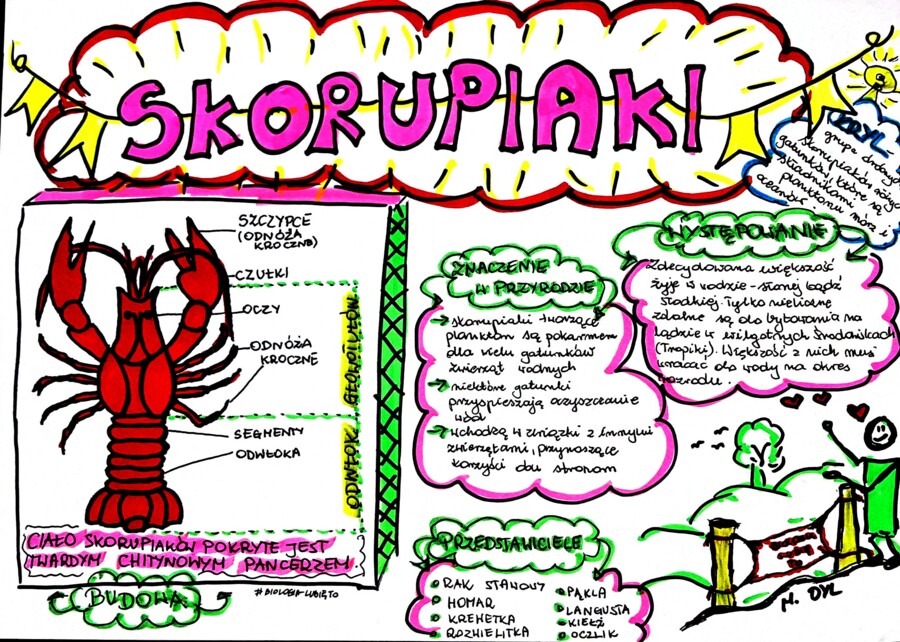 SKORUPIAKI
KRYL
grupa drobnych
skorupiaków różnych
gatunków, które są
składnikami
planktonu mórz i
oceanów
SZCZYPCE
(ODNÓŻA
KROCZNE)
CZUŁKI
OCZY
ODNÓŻA
KROCZNE
GŁOWOTUŁÓW
SEGMENTY
ODWŁOKA
ODWŁOK
CIAŁO SKORUPIAKÓW POKRYTE JEST
TWARDYM CHITYNOWYM PANCERZEM
BUDOWA
#BIOLOGIALUBIĘTO
ZNACZENIE
W PRZYRODZIE
→ skorupiaki tworzące
plankton są pokarmem
dla wielu gatunków
zwierząt wodnych
→ niektóre gatunki
przyspieszają oczyszczanie
wód
→ wchodzą w związki z innymi
zwierzętami, przynoszące
korzyści dwu stronom
WYSTĘPOWANIE
Zdecydowana większość
żyje w wodzie - słonej bądź
słodkiej. Tylko nieliczne
zdolne są do bytowania na
lądzie w wilgotnych środowiskach
(Tropiki). Większość z nich musi
wracać do wody na okres
rozrodu.
PRZEDSTAWICIELE
RAK STAWOWY
HOMAR
KREWETKA
ROZWIELITKA
PĄKLA
LANGUSTA
KIEŁŻ
OCZLIK
M. DYL